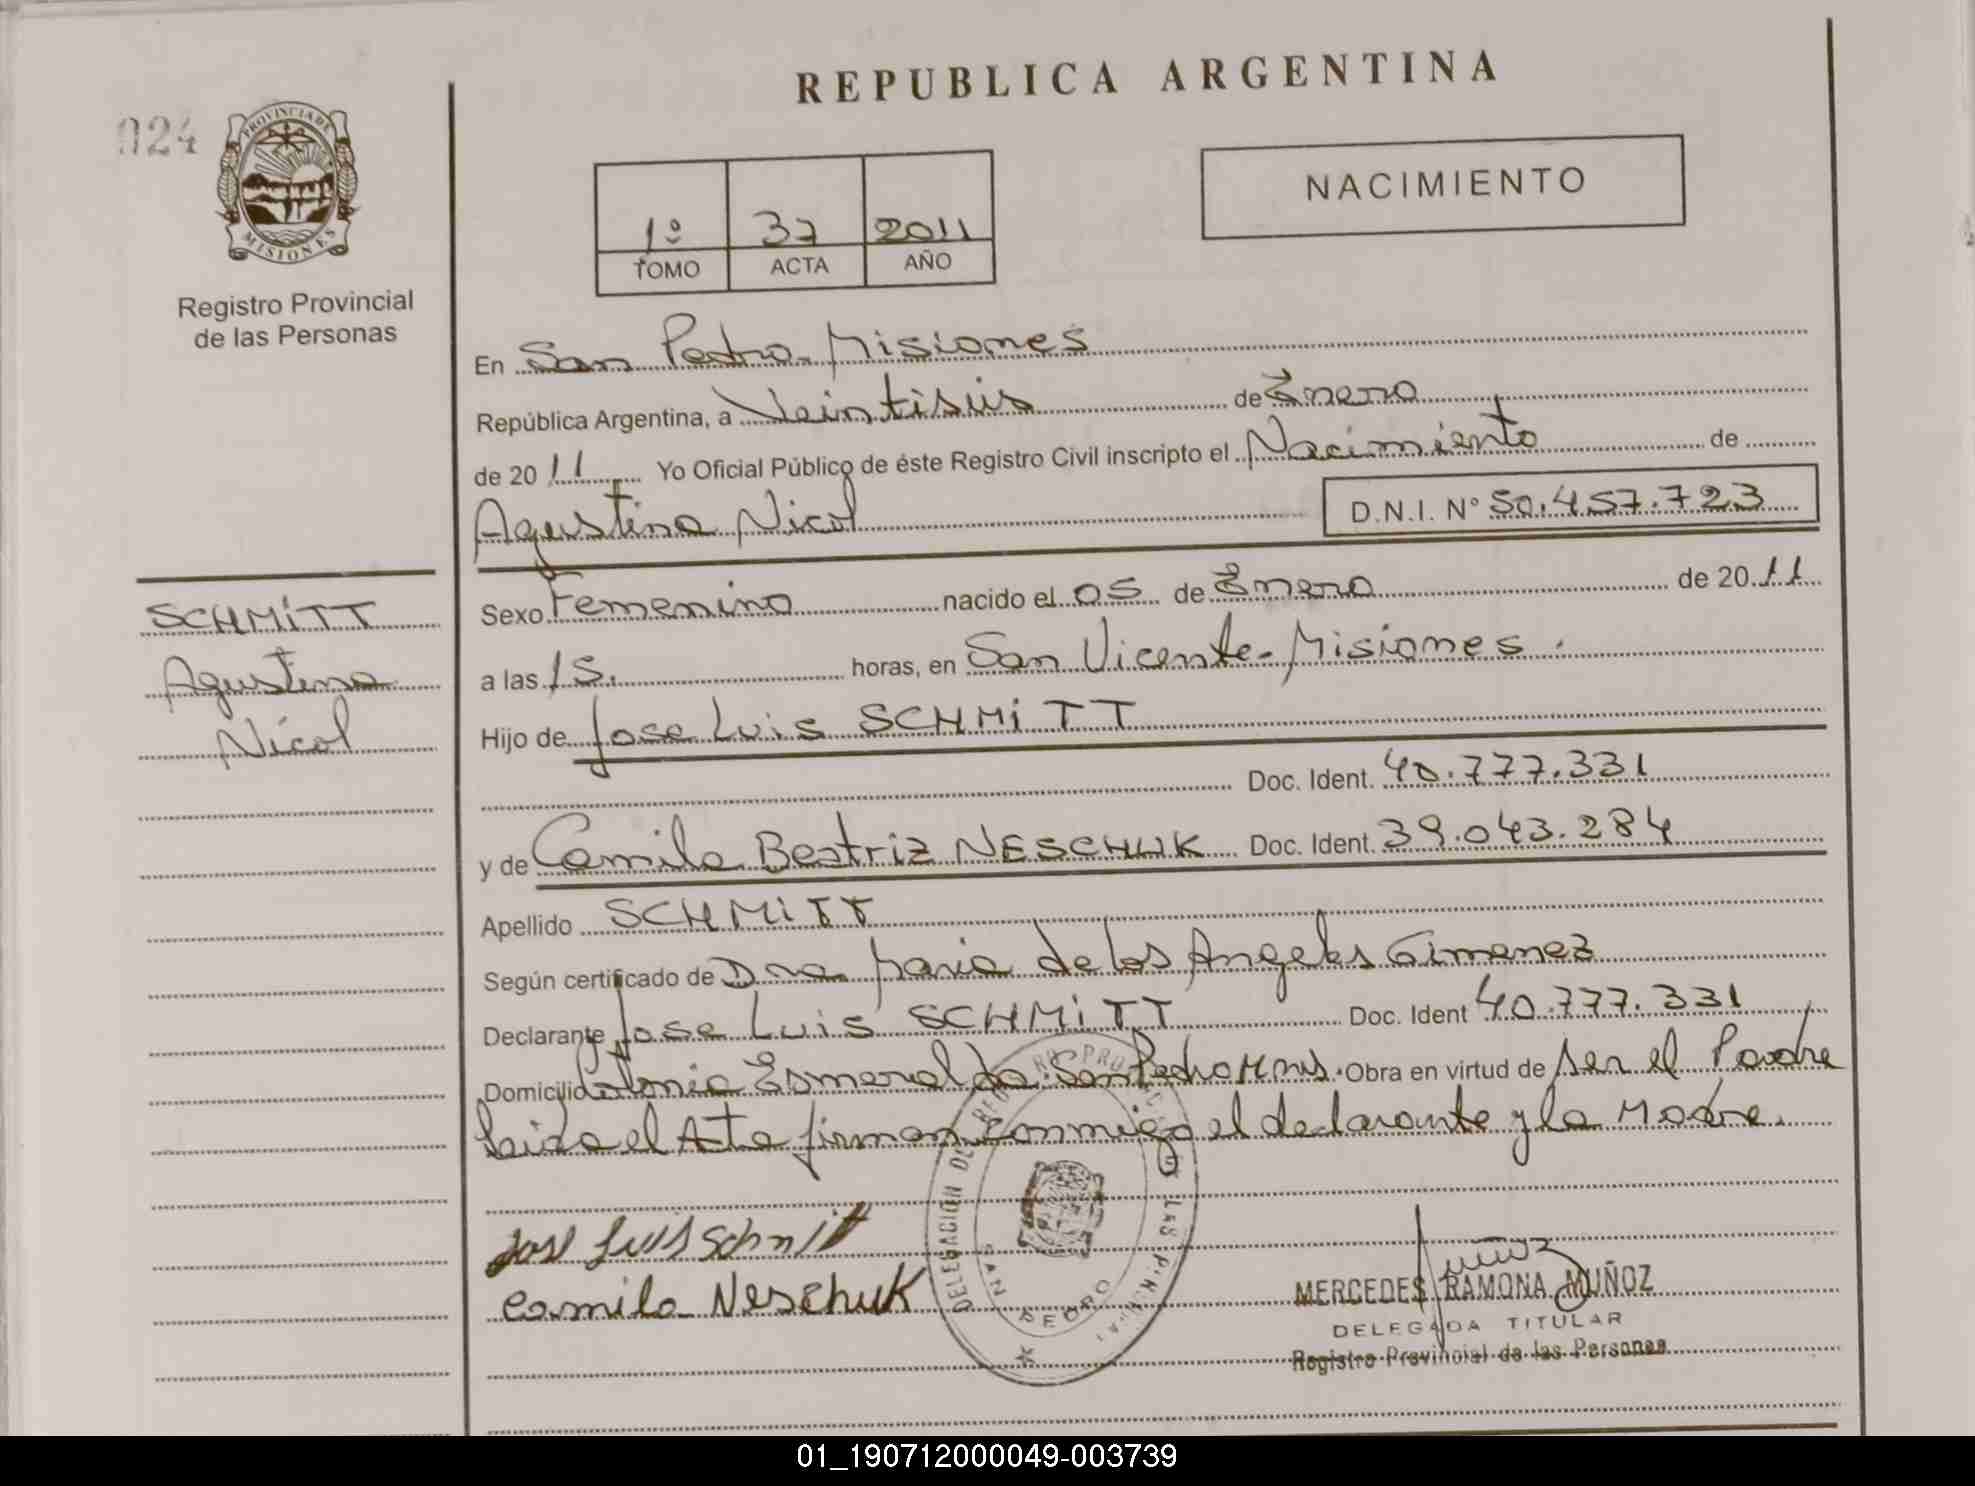 REPUBLICA ARGENTINA
024
PROVINCIA DE
MISIONES
Registro Provincial
de las Personas
NACIMIENTO
1º 37 2011
TOMO ACTA AÑO
En San Pedro Misiones
República Argentina, a Veintisiis de Enero
de 20 11 Yo Oficial Público de éste Registro Civil inscripto el Nacimiento de
Agustina Nicol D.N.I. Nº 50.457.723
SCHMITT
Agustina
Nicol
Sexo Femenino nacido el 05 de Enero de 20 11
a las 15. horas, en San Vicente - Misiones.
Hijo de Jose Luis SCHMITT
Doc. Ident. 40.777.331
y de Camila Beatriz NESCHUK Doc. Ident. 39.043.284
Apellido SCHMITT
Según certificado de Dra. Maria de los Angeles Gimenez
Declarante Jose Luis SCHMITT Doc. Ident 40.777.331
Domicilio Colonia Esmeralda San Pedro Mnes. Obra en virtud de ser el Padre
leida el Acta firman conmigo el declarante y la Madre.
Jose Luis Schmitt
Camila Neschuk
DELEGACION DE REG
LAS
SAN PEDRO
MERCEDES RAMONA MUÑOZ
DELEGADA TITULAR
Registro Provincial de las Personas
01_190712000049-003739